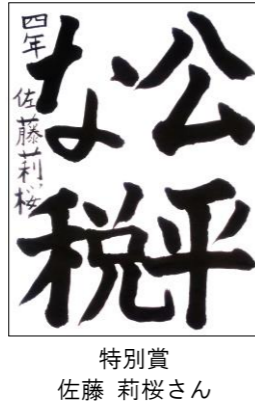 公平
な税
四年 佐藤莉桜
特別賞
佐藤 莉桜さん